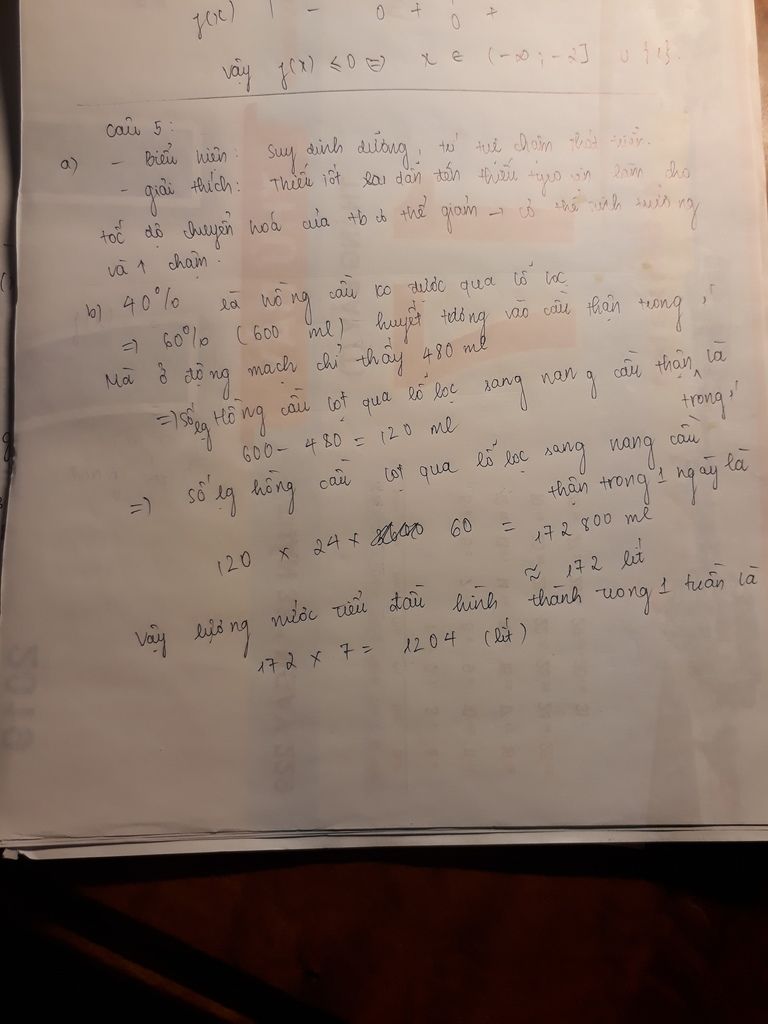 f(x) | - 0 + 0 +
vậy f(x) ≤ 0 ⇔ x ∈ (-∞; -2] ∪ {1}.
Câu 5:
a) - Biểu hiện: Suy dinh dưỡng, trí tuệ chậm phát triển.
- giải thích: Thiếu iốt sẽ dẫn đến thiếu làm cho
tốc độ chuyển hoá của tb có thể giảm → có thể sinh trưởng
và 1 chậm.
b) 40% là hồng cầu ko được qua lỗ lọc
⇒ 60% (600 ml) huyết tương vào cầu thận trong 1'
Mà ở động mạch chỉ thấy 480 ml
⇒ số lg Hồng cầu lọt qua lỗ lọc sang nang cầu thận là
trong 1'
600 - 480 = 120 ml
⇒ số lg hồng cầu lọt qua lỗ lọc sang nang cầu
thận trong 1 ngày là
120 x 24 x 60 = 172 800 ml
≈ 172 lít
Vậy lượng nước tiểu đầu hình thành trong 1 tuần là
172 x 7 = 1204 (lít)